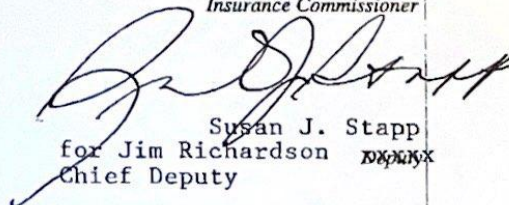 Insurance Commissioner
Susan J. Stapp
for Jim Richardson Deputy
Chief Deputy